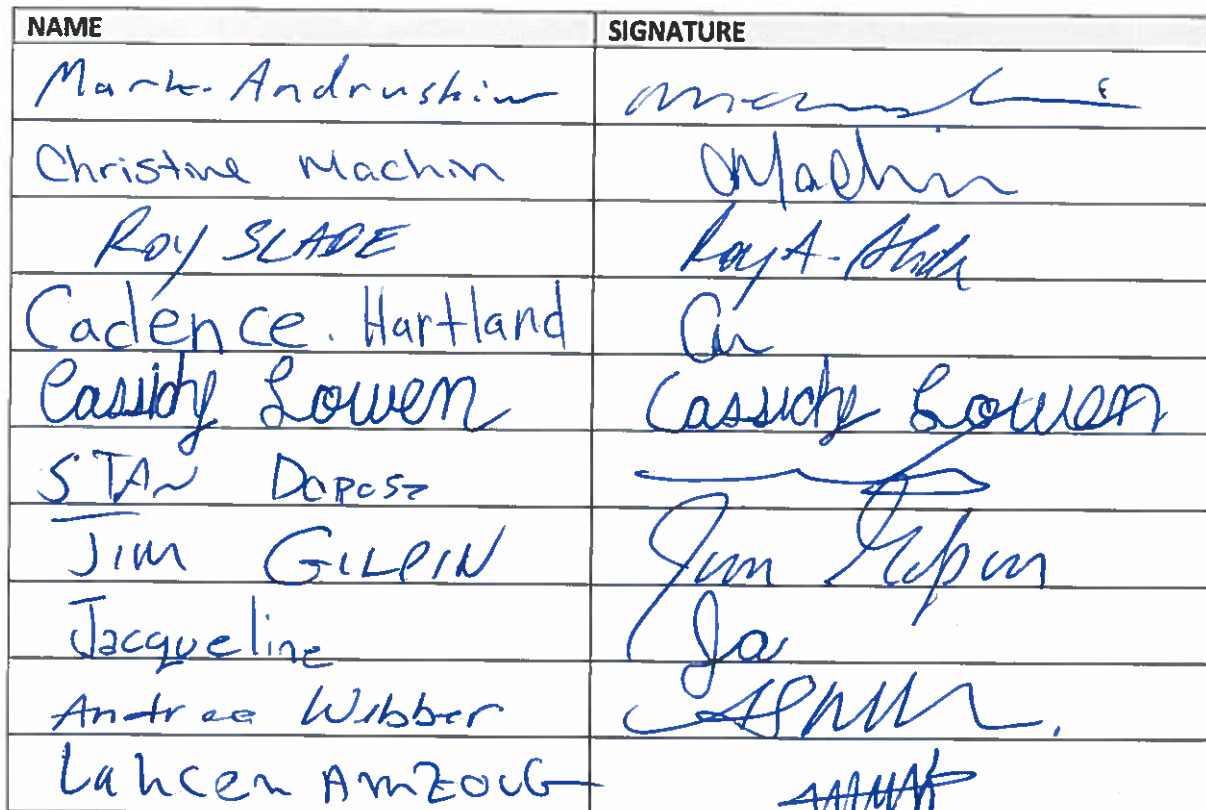 NAME SIGNATURE
Mark Andruskiw
Christine Machin CMachin
Roy SLADE Roy A. Slade
Cadence. Hartland
Cassidy Lowen Cassidy Lowen
STAN
Jim GILPIN Jim Gilpin
Jacqueline Ja
Andrea Webber
Lahcen AmZOUG